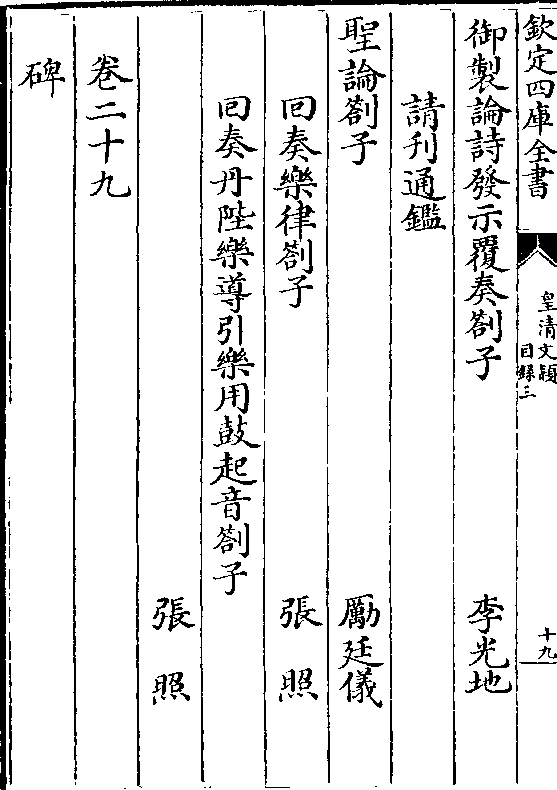 欽定四庫全書
皇清文穎
目錄三
十九
御製論詩發示覆奏劄子
李光地
請刋通鑑
聖論劄子
勵廷儀
回奏樂律劄子
張照
回奏丹陛樂導引樂用鼓起音劄子
張照
卷二十九
碑